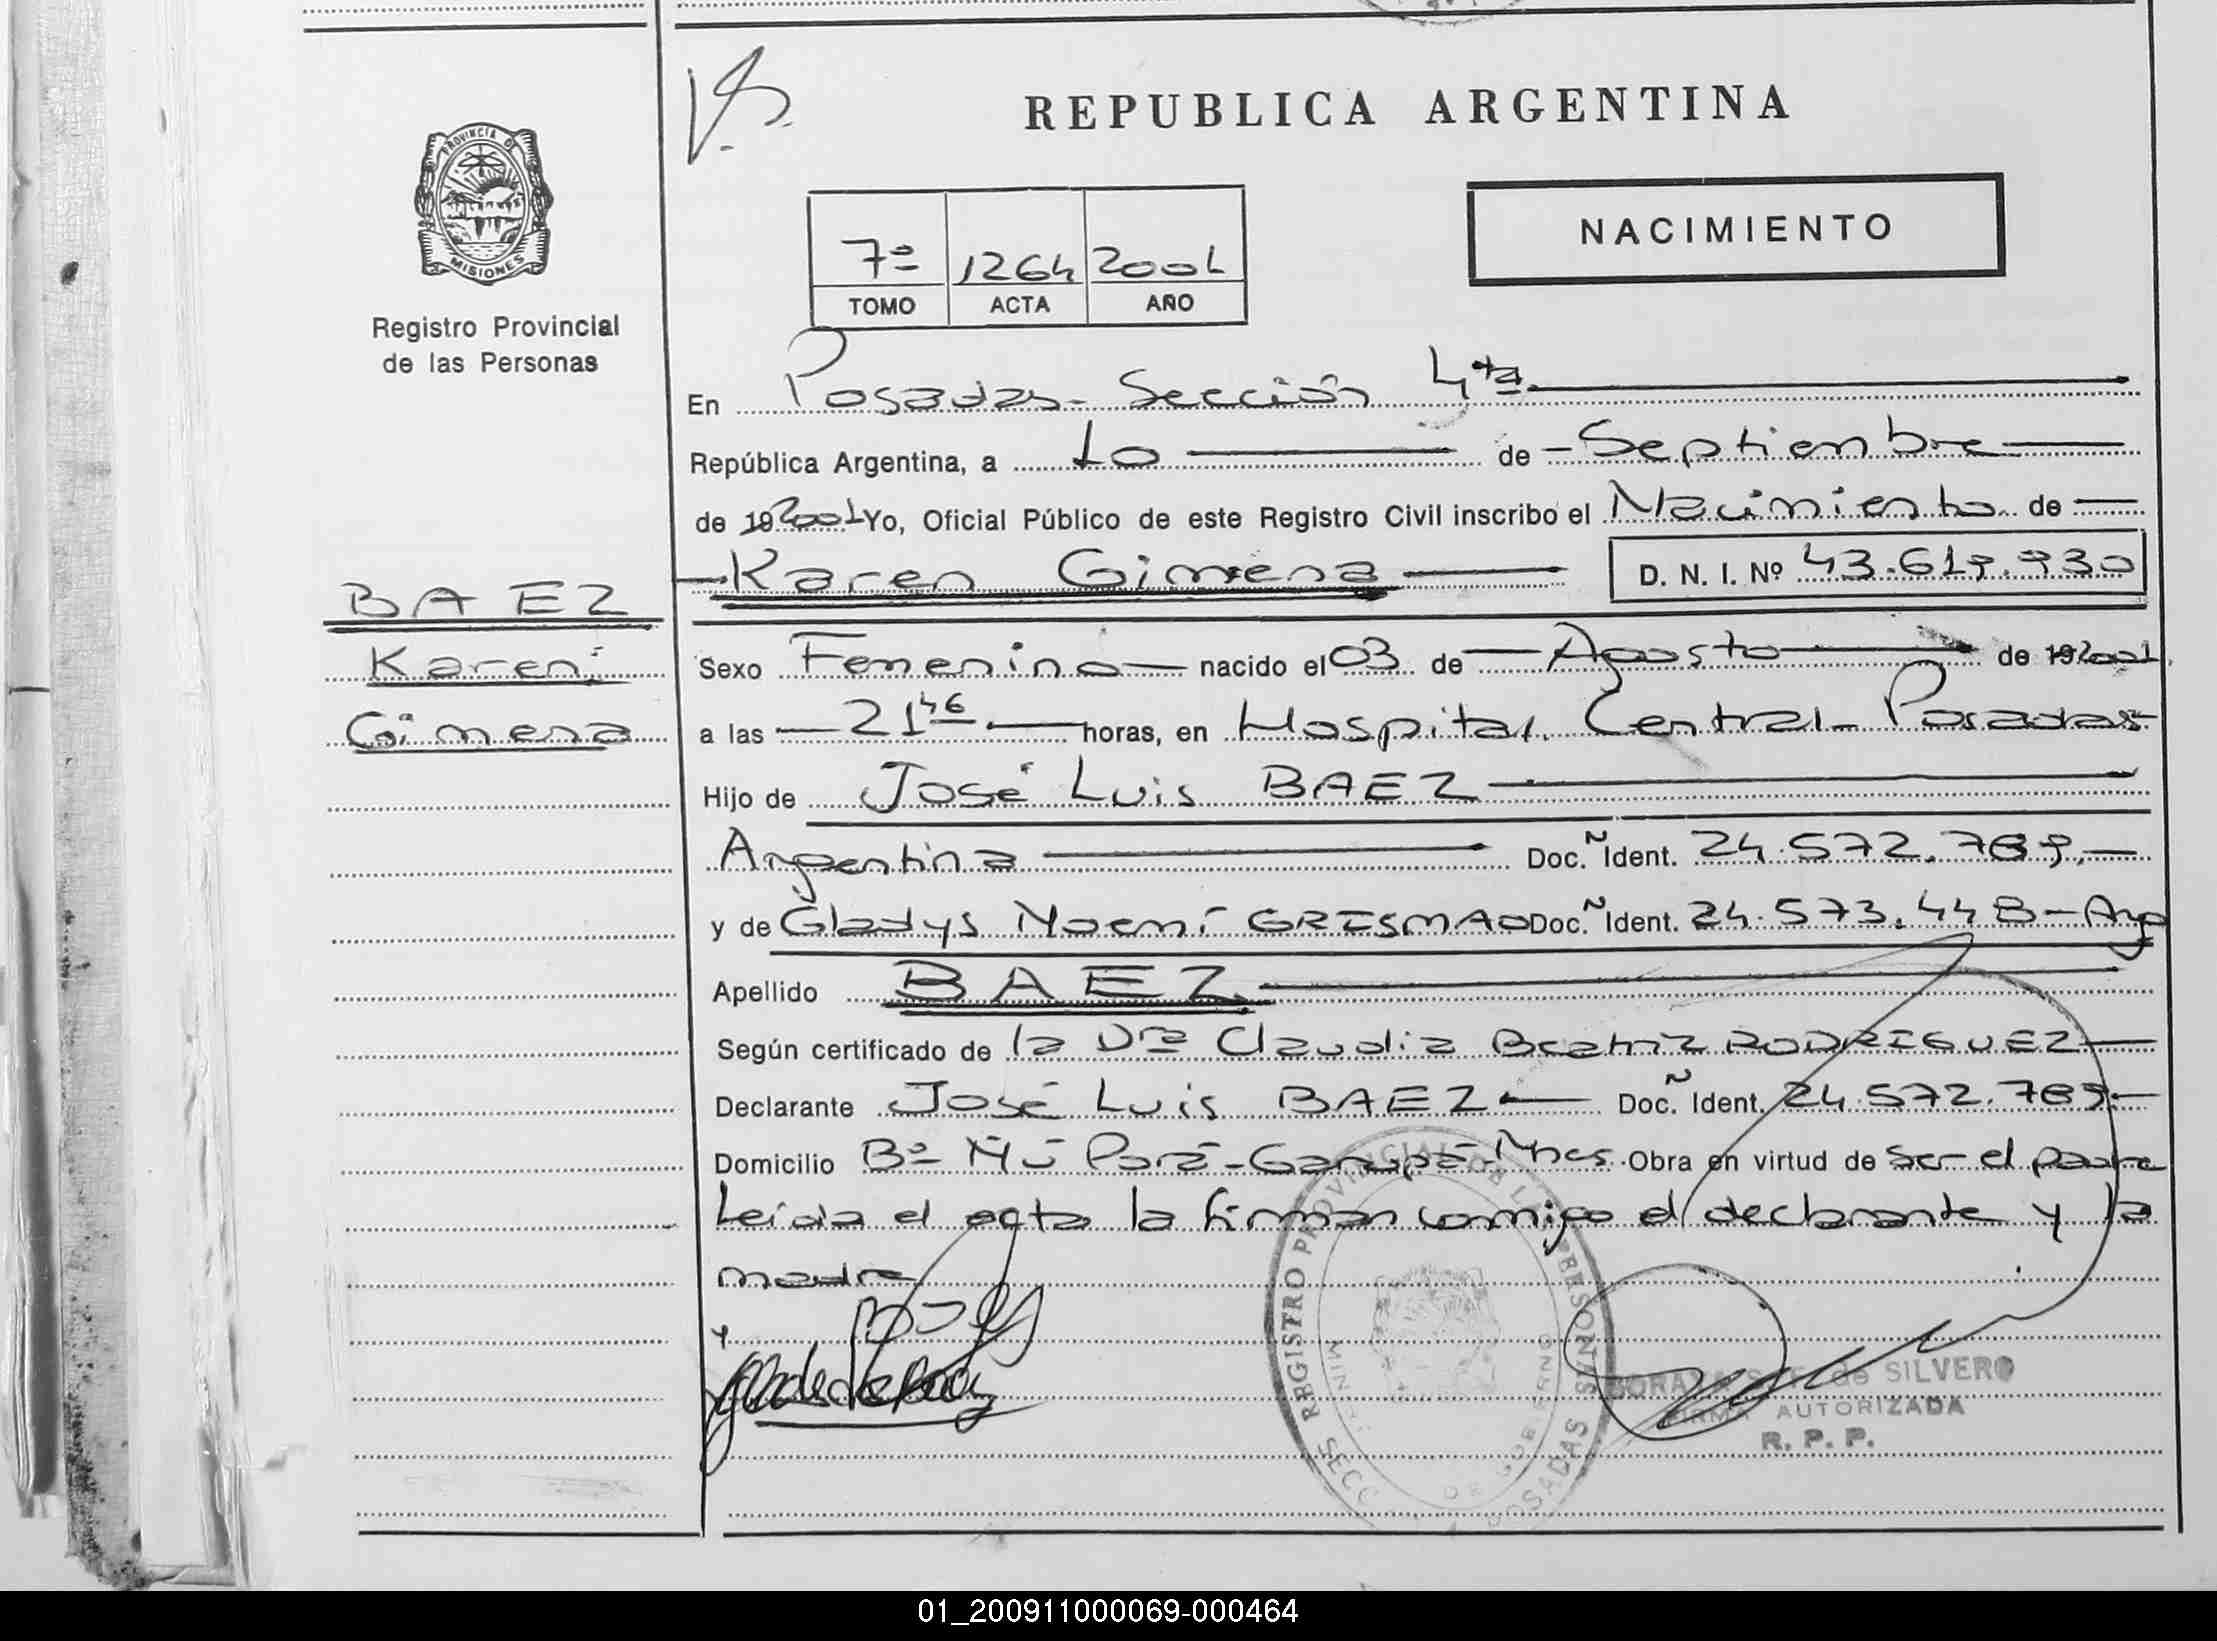 REPUBLICA ARGENTINA
PROVINCIA DE
MISIONES
Registro Provincial
de las Personas
NACIMIENTO
7º 1264 2001
TOMO ACTA AÑO
En Posadas - Sección 4ta
República Argentina, a 10 de Septiembre
de 19 2001 Yo, Oficial Público de este Registro Civil inscribo el Nacimiento de
Karen Gimena D. N. I. Nº
BAEZ
Karen
Gimena
Sexo Femenino nacido el 03 de Agosto de 19 2001
a las 21 46 horas, en Hospital Central - Posadas
Hijo de José Luis BAEZ
Argentina Doc. Ident. 24.572.789.-
y de Gladys Noemí GRISMAO Doc. Ident. 24.573.448 - Arg
Apellido BAEZ
Según certificado de la Dra Claudia Beatriz RODRIGUEZ
Declarante José Luis BAEZ Doc. Ident. 24.572.789.-
Domicilio Bº Ñú Porá - Garupá - Mnes. Obra en virtud de ser el padre
Leida el acta la firman conmigo el declarante y la
madre
REGISTRO PROVINCIAL DE LAS PERSONAS
SECC. POSADAS
DE GOBIERNO
SILVERO
FIRMA AUTORIZADA
R. P. P.
01_200911000069-000464